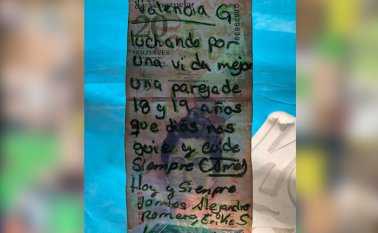 Valencia G
luchando por
una vida mejor
una pareja de
18 y 19 años
que dios nos
guie y cuide
siempre
Hoy y Siempre
somos Alejandro
Romero
BOLIVARES